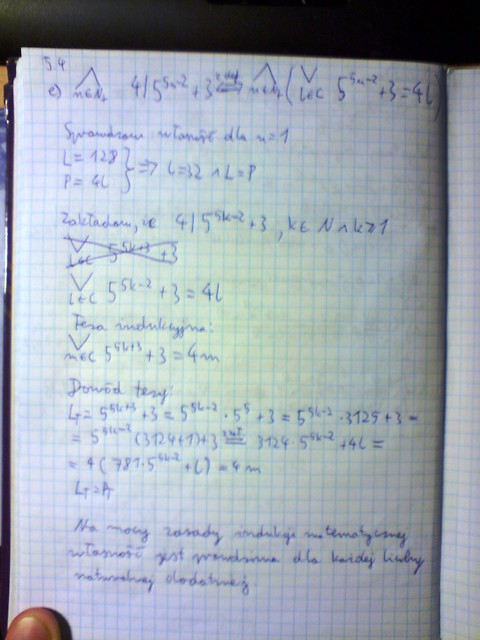 5.4
c) ⋀ n∈N₊ 4|5^(5n-2)+3 ⟺(z def) ⋀ n∈N₊ (⋁ l∈C 5^(5n-2)+3=4l)
Sprawdzam własność dla n=1
L=128
P=4l } ⇒ l=32 ∧ L=P
Zakładam, że 4|5^(5k-2)+3, k∈N ∧ k≥1
⋁ l∈C 5^(5k+3)+3
⋁ l∈C 5^(5k-2)+3=4l
Teza indukcyjna:
⋁ m∈C 5^(5k+3)+3=4m
Dowód tezy:
L_T=5^(5k+3)+3=5^(5k-2)·5^5+3=5^(5k-2)·3125+3=
=5^(5k-2)(3124+1)+3 = 3124·5^(5k-2)+4l=
=4(781·5^(5k-2)+l)=4m
L_T=P_T
Na mocy zasady indukcji matematycznej
własność jest prawdziwa dla każdej liczby
naturalnej dodatniej.